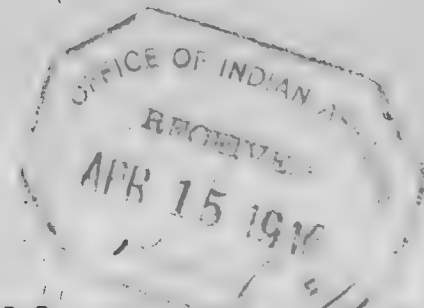 OFFICE OF INDIAN
RECEIVED
APR 15 191